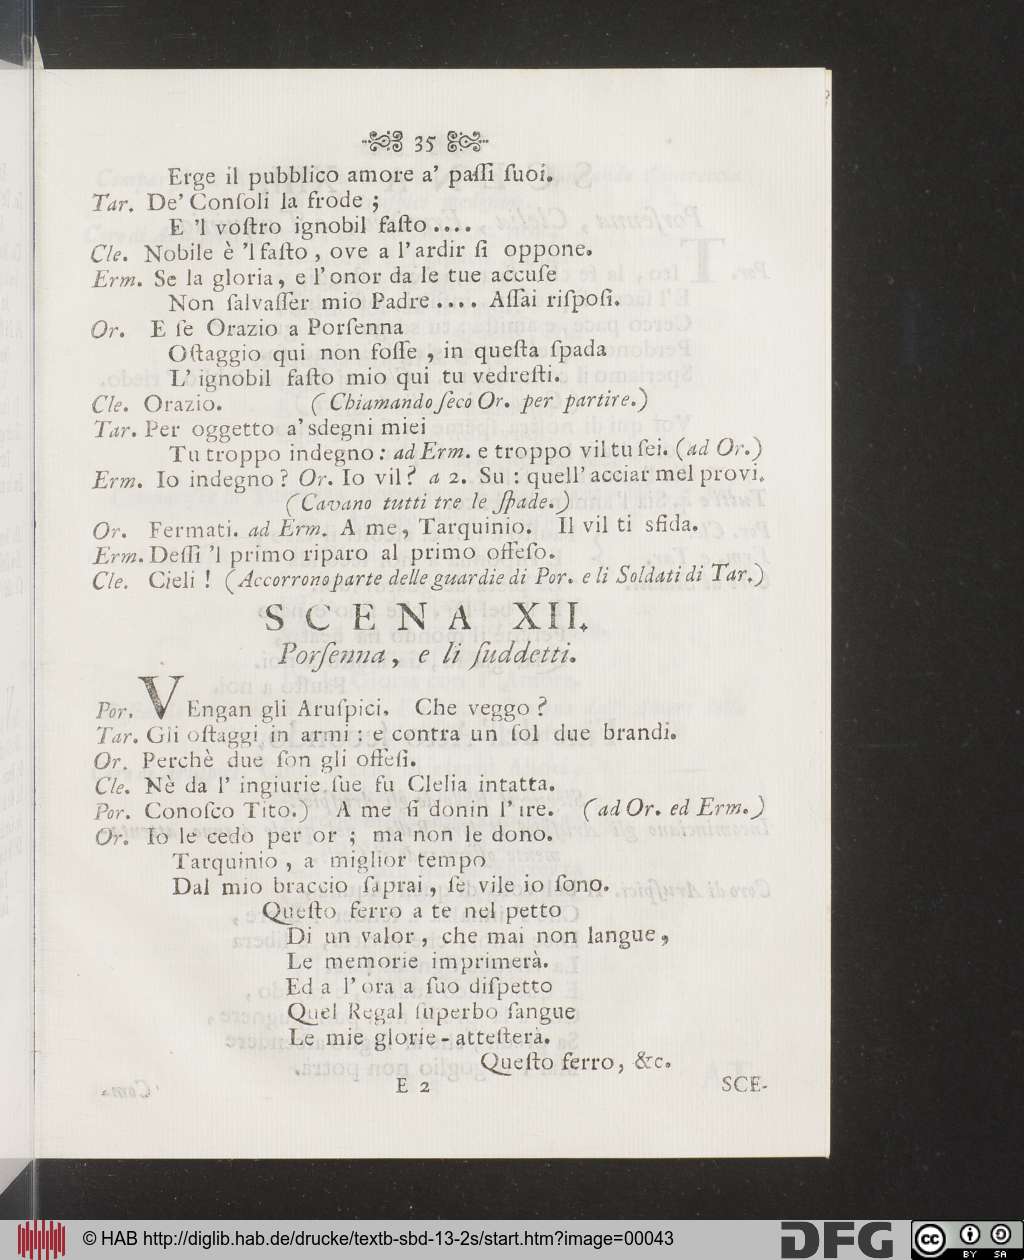 35
Erge il pubblico amore a' paſſi ſuoi.
Tar. De' Conſoli la frode ;
E 'l voſtro ignobil faſto ....
Cle. Nobile è 'l faſto , ove a l' ardir ſi oppone.
Erm. Se la gloria, e l' onor da le tue accuſe
Non ſalvaſſer mio Padre .... Aſſai riſpoſi.
Or. E ſe Orazio a Porſenna
Oſtaggio qui non foſſe , in queſta ſpada
L' ignobil faſto mio qui tu vedreſti.
Cle. Orazio. ( Chiamando ſeco Or. per partire.)
Tar. Per oggetto a' sdegni miei
Tu troppo indegno : ad Erm. e troppo vil tu ſei. (ad Or.)
Erm. Io indegno ? Or. Io vil ? a 2. Su : quell' acciar mel provi.
(Cavano tutti tre le ſpade.)
Or. Fermati. ad Erm. A me, Tarquinio. Il vil ti sfida.
Erm. Deſſi 'l primo riparo al primo offeſo.
Cle. Cieli ! (Accorrono parte delle guardie di Por. e li Soldati di Tar.)
SCENA XII.
Porſenna, e li ſuddetti.
Por. VEngan gli Aruſpici. Che veggo ?
Tar. Gli oſtaggi in armi : e contra un ſol due brandi.
Or. Perchè due ſon gli offeſi.
Cle. Nè da l' ingiurie ſue fu Clelia intatta.
Por. Conoſco Tito.) A me ſi donin l' ire. (ad Or. ed Erm.)
Or. Io le cedo per or ; ma non le dono.
Tarquinio , a miglior tempo
Dal mio braccio ſaprai , ſe vile io ſono.
Queſto ferro a te nel petto
Di un valor , che mai non langue ,
Le memorie imprimerà.
Ed a l' ora a ſuo diſpetto
Quel Regal ſuperbo ſangue
Le mie glorie - atteſterà.
Queſto ferro, &c.
E 2 SCE-
© HAB http://diglib.hab.de/drucke/textb-sbd-13-2s/start.htm?image=00043
DFG
cc BY SA